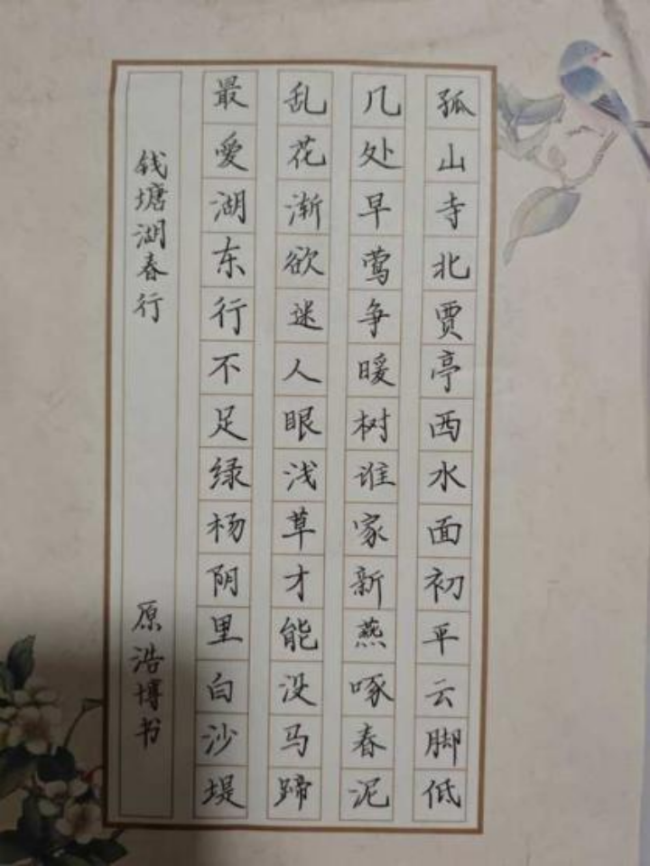 孤山寺北贾亭西水面初平云脚低
几处早莺争暖树谁家新燕啄春泥
乱花渐欲迷人眼浅草才能没马蹄
最爱湖东行不足绿杨阴里白沙堤
钱塘湖春行 原浩博书